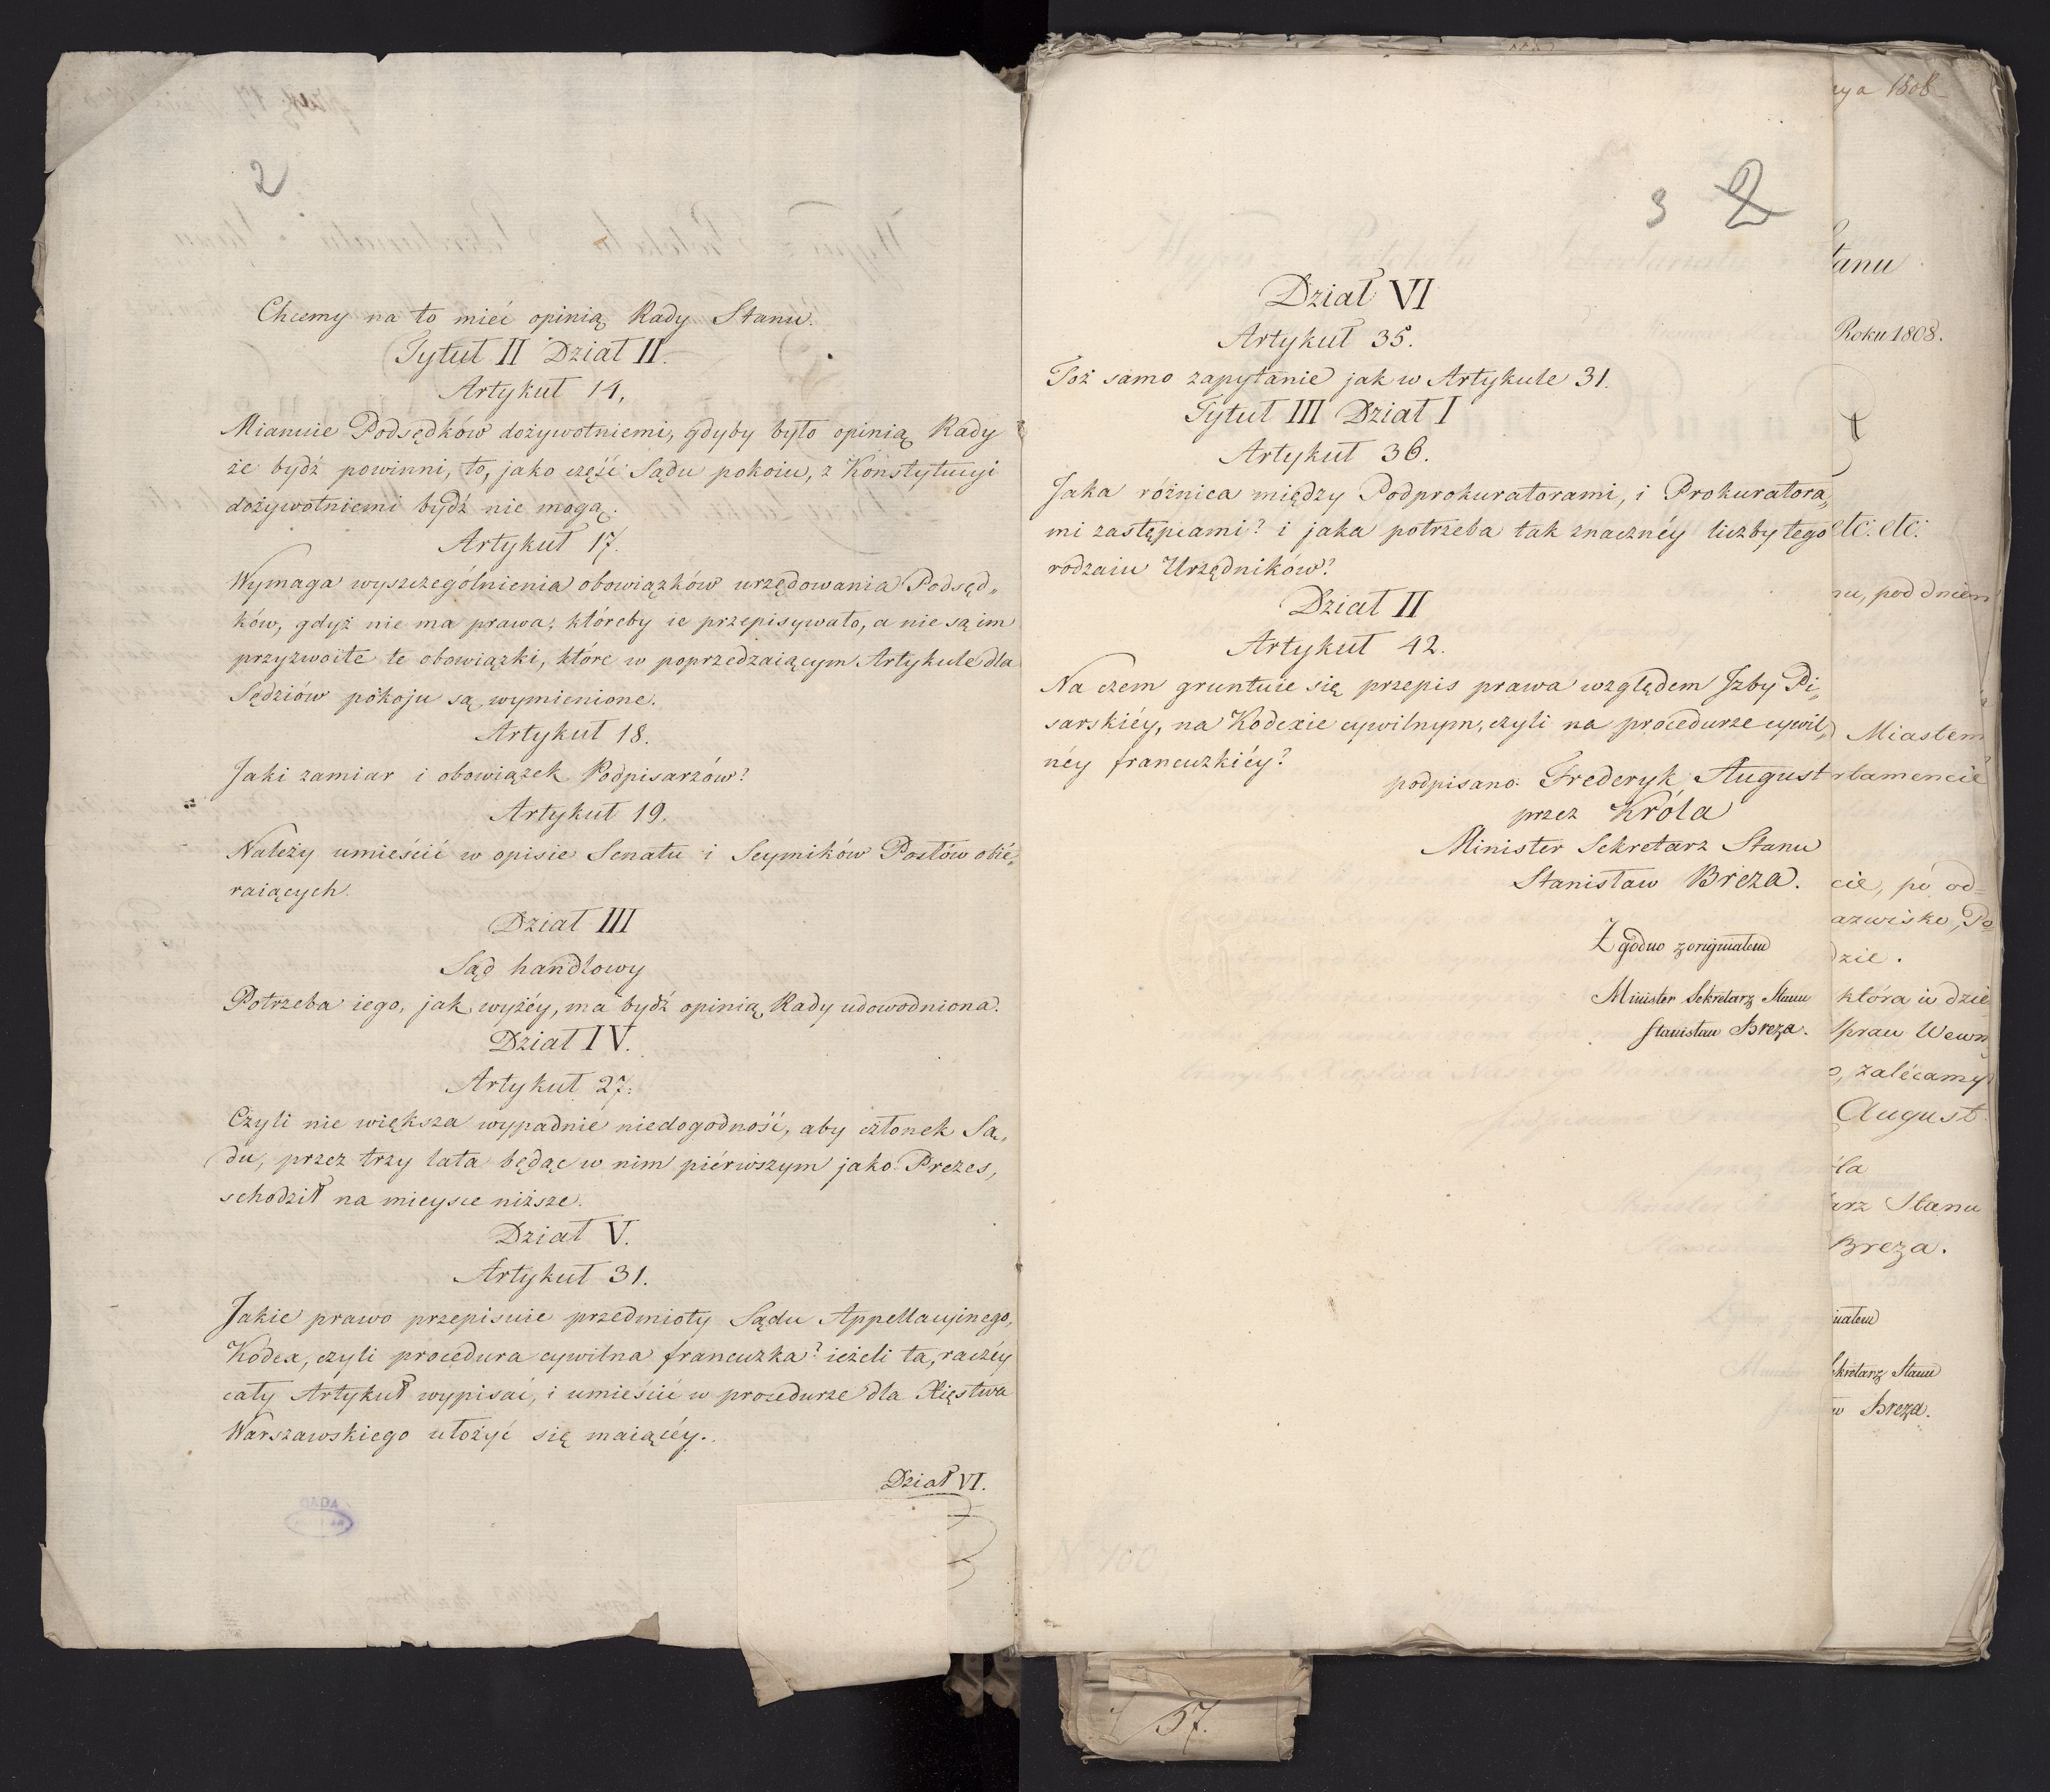 2
Chcemy na to mieć opinią Rady Stanu.
Tytuł II Dział II.
Artykuł 14.
Mianuie Podsędków dożywotniemi, gdyby było opinią Rady
że bydź powinni, to, jako część Sądu pokoiu, z Konstytucyi
dożywotniemi bydź nie mogą.
Artykuł 17.
Wymaga wyszczególnienia obowiązków urzędowania Podsęd„
ków, gdyż nie ma prawa, któreby ie przepisywało, a nie są im
przyzwoite te obowiązki, które w poprzedzaiącym Artykule dla
Sędziów pokoju są wymienione.
Artykuł 18.
Jaki zamiar i obowiązek Podpisarzów?
Artykuł 19.
Należy umieścić w opisie Senatu i Seymików Posłów obié„
raiących.
Dział III
Sąd handlowy
Potrzeba iego, jak wyżéy, ma bydź opinią Rady udowodniona.
Dział IV.
Artykuł 27.
Czyli nie większa wypadnie niedogodność, aby członek Są„
du, przez trzy lata będąc w nim piérwszym jako Prezes,
schodził na mieysce niższe.
Dział V.
Artykuł 31.
Jakie prawo przepisuie przedmioty Sądu Appellacyinego,
Kodex, czyli procedura cywilna francuzka? ieżeli ta, raczéy
cały Artykuł wypisać, i umieścić w procedurze dla Xięstwa
Warszawskiego ułożyć się maiącéy.
Dział VI.
3 2
Dział VI
Artykuł 35.
Toż samo zapytanie jak w Artykule 31.
Tytuł III Dział I
Artykuł 36.
Jaka różnica między Podprokuratorami, i Prokuratora„
mi zastępcami? i jaka potrzeba tak znacznéy liczby tego
rodzaiu Urzędników?
Dział II
Artykuł 42.
Na czem gruntuie się przepis prawa względem Izby Pi„
sarskiéy, na Kodexie cywilnym, czyli na procedurze cywil„
néy francuzkiéy?
podpisano: Frederyk August
przez Króla
Minister Sekretarz Stanu
Stanisław Breza.
Zgodno z originałem
Minister Sekretarz Stanu
Stanisław Breza.
1808
tanu
Roku 1808.
etc: etc:
nu, pod dniem
Miastem
rtamencie
cie, po od=
azwisko, Po
dzie.
która w dzie
Spraw Wewn
o, zalécamy
August
la
arz Stanu
Breza.
inałem
ekretarz Stanu
w Breza.
57.